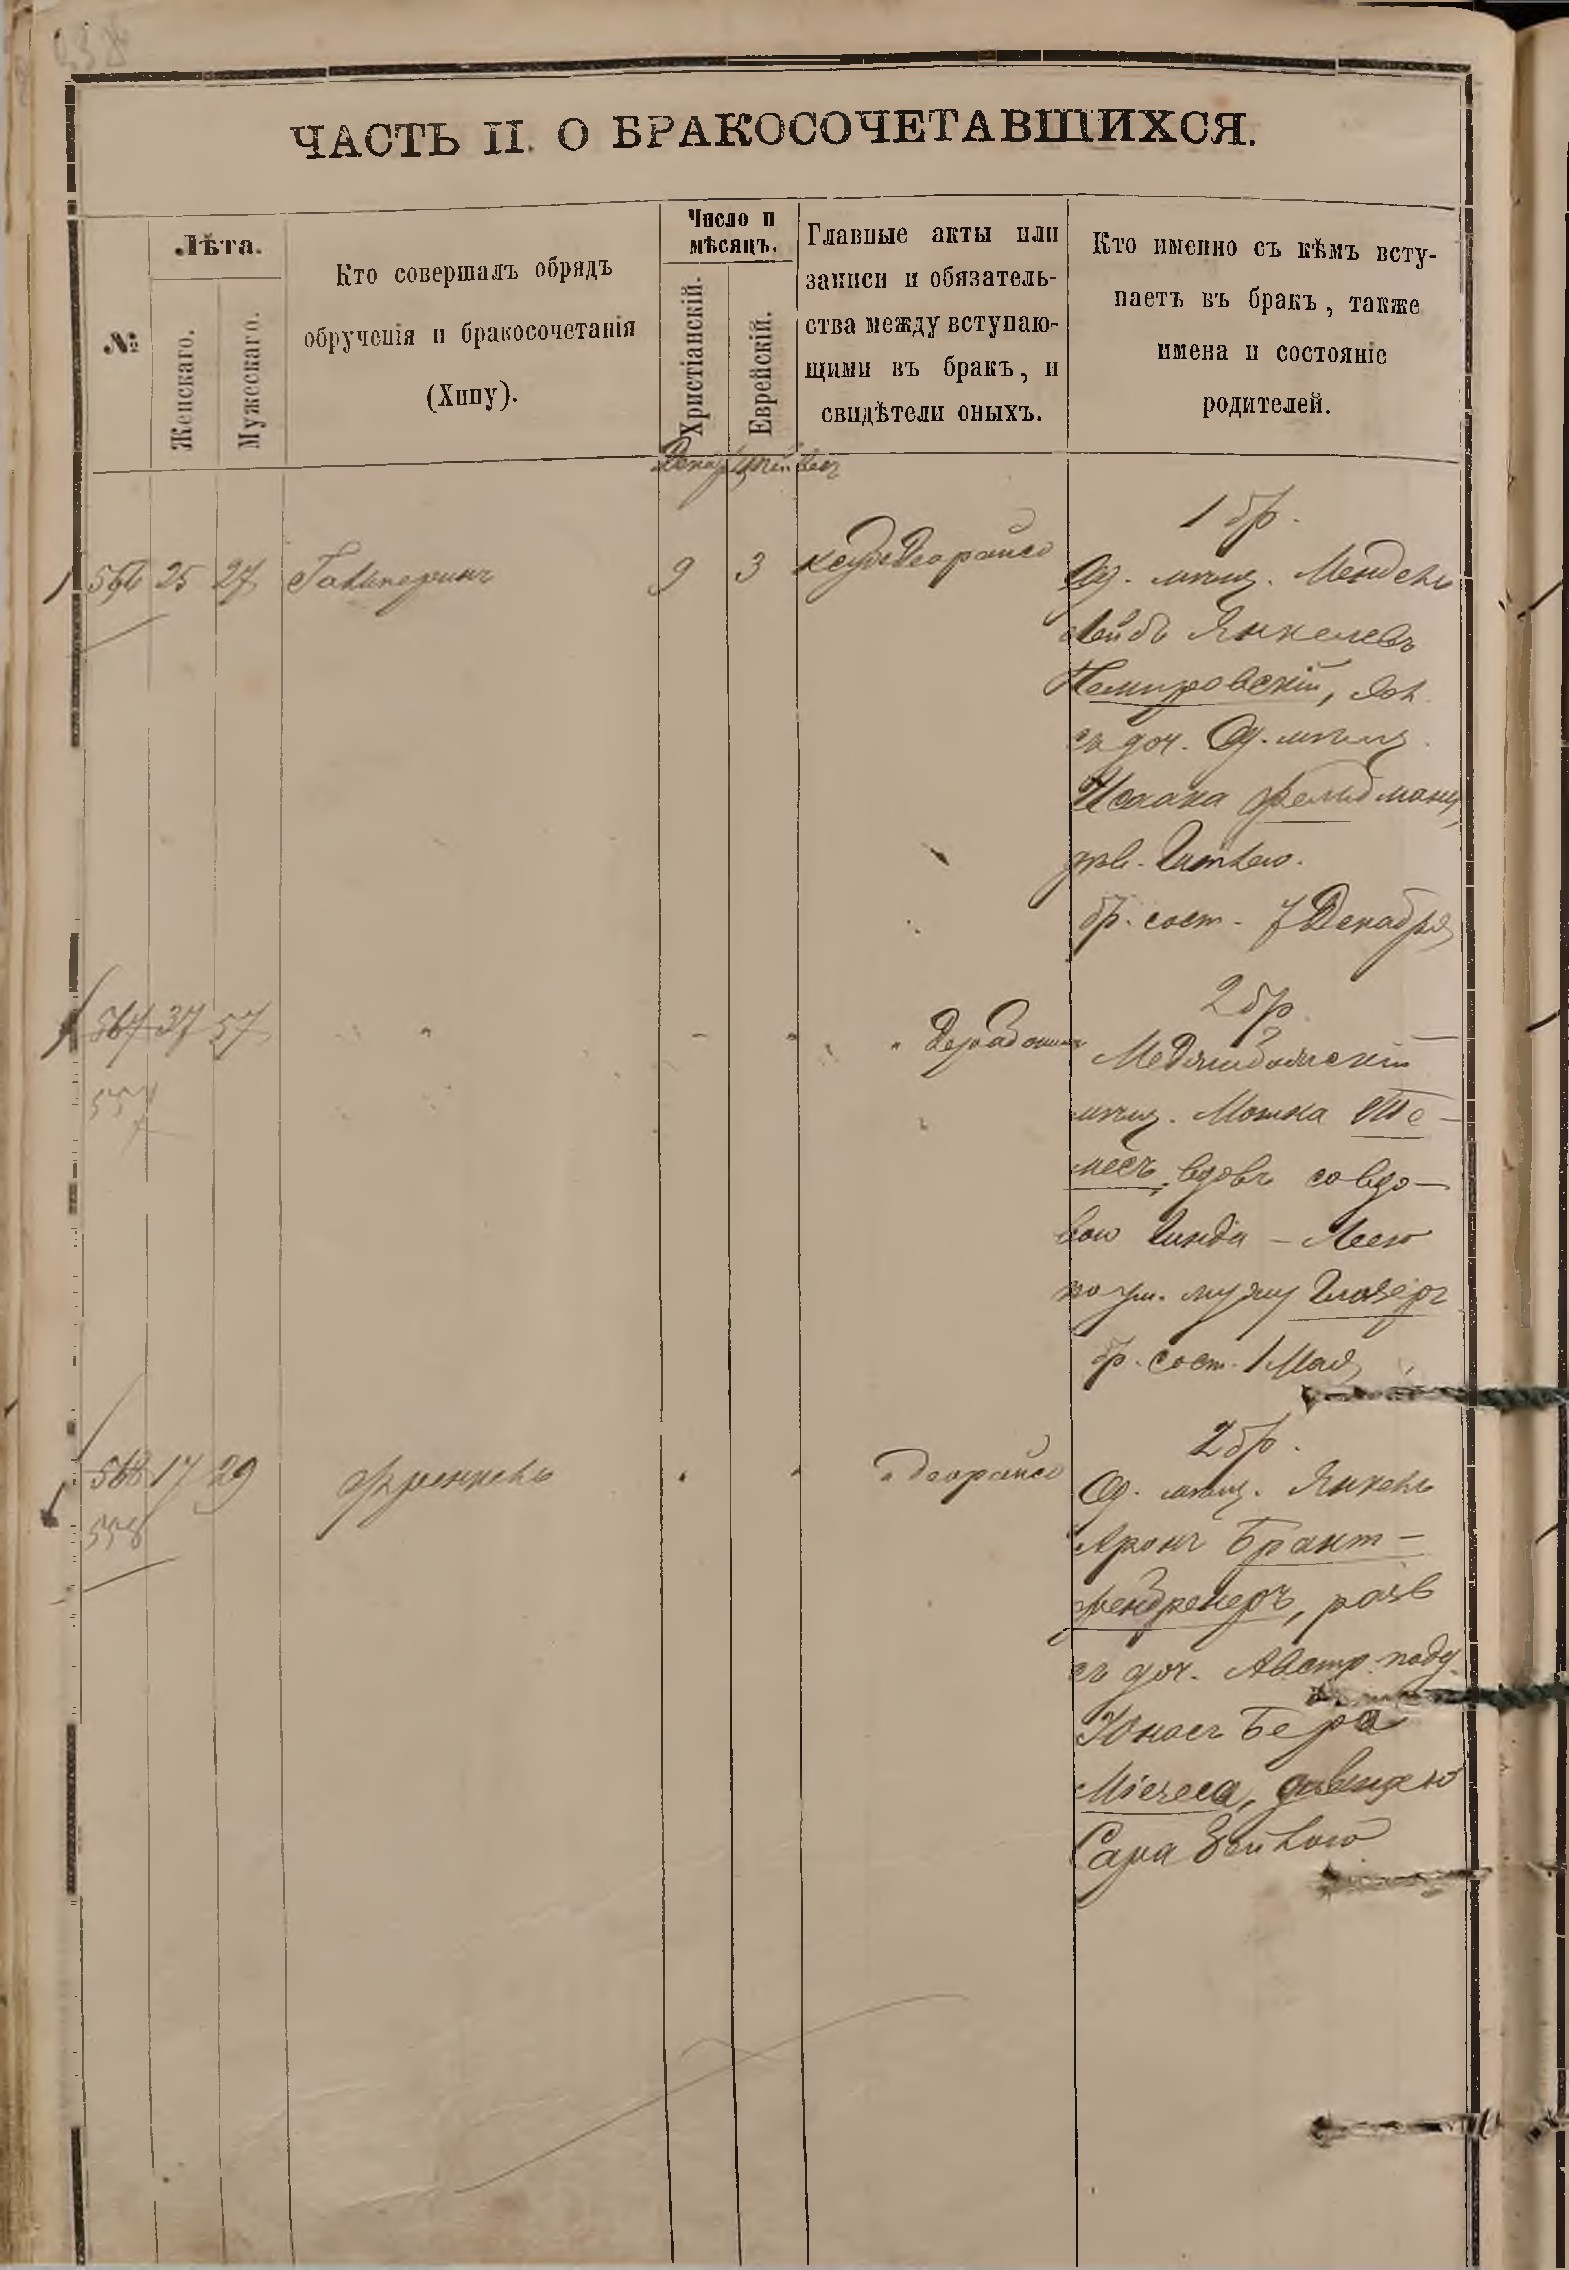 ЧАСТЬ II. О БРАКОСОЧЕТАВШИХСЯ.
№
Лѣта.
Женскаго.
Мужескаго.
Кто совершалъ обрядъ
обрученія и бракосочетанія
(Хипу).
Число и
мѣсяцъ.
Христіанскій.
Еврейскій.
Главные акты или
записи и обязатель-
ства между вступаю-
щими въ бракъ, и
свидѣтели оныхъ.
Кто именно съ кѣмъ всту-
паетъ въ бракъ, также
имена и состояніе
родителей.
566 25 27 Гальперинъ 9 3
1 бр.
Од. мѣщ. Мендель
Лейбъ Янкелевъ
Немировскій, хол.
съ доч. Од. мѣщ.
Исаака Фельдмана,
дѣв. Гитлею.
бр. сост. 7 Декабря
567 37 57
557
2 бр.
мѣщ. Мошка Те-
месъ, вдовъ со вдо-
вою Гинда-Леею
по ум. мужу Глазеръ
бр. сост. 1 Мая
568 17 29 Френкель
558
деорайсо
2 бр.
Од. мѣщ. Янкель
Аронъ Брант-
фендрегеръ, разв
съ доч. Австр. подд.
Юнасъ Бера
Міезеса, дѣвицею
Сара Бейлою